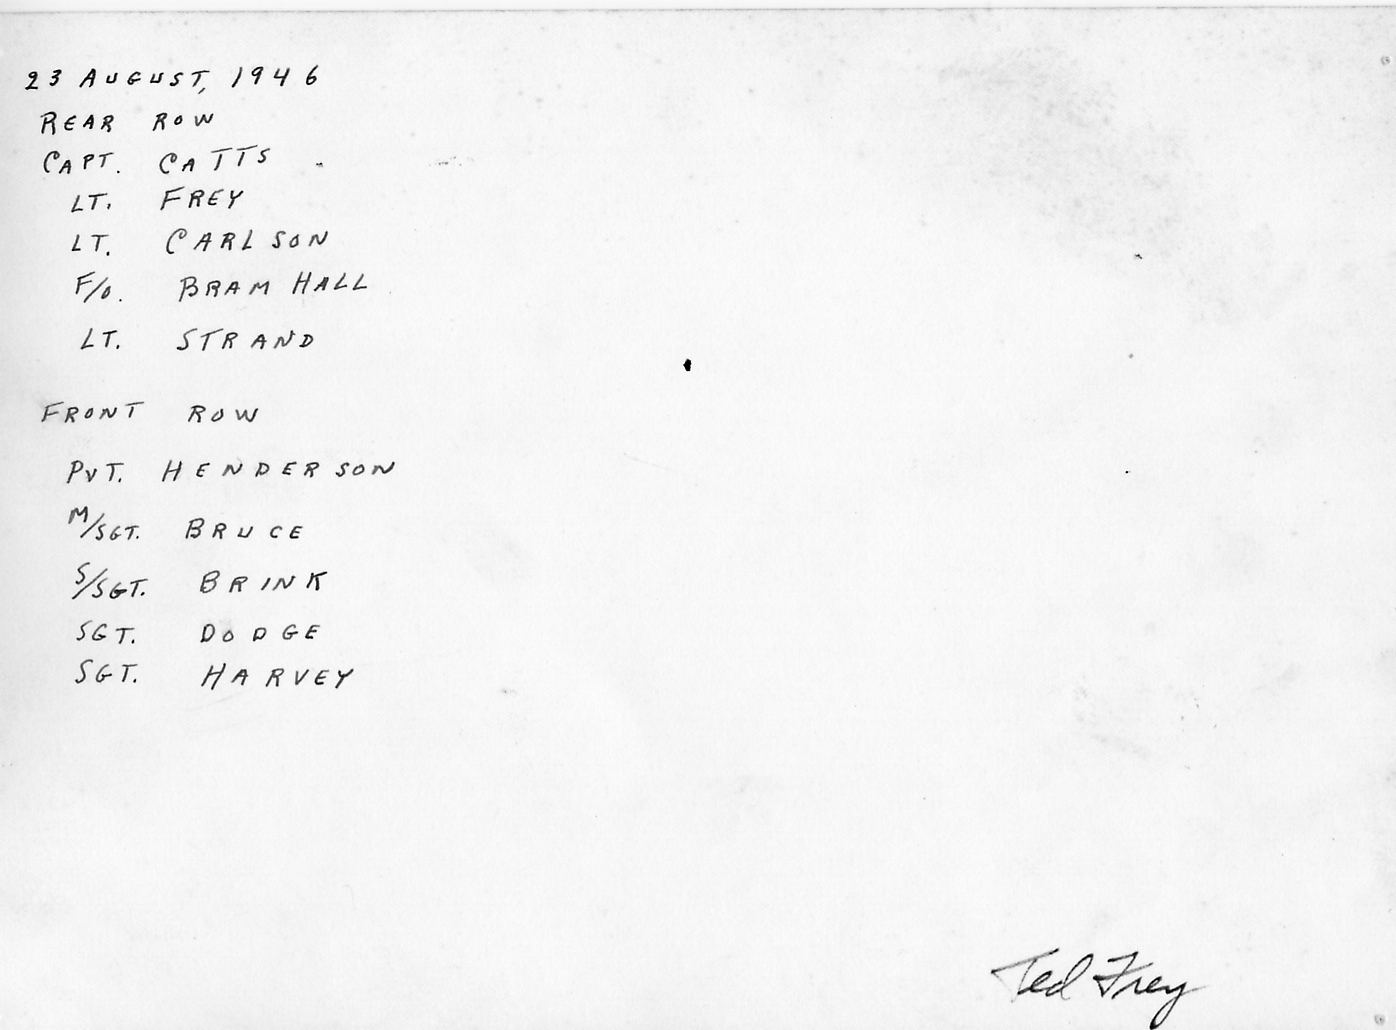 23 AUGUST, 1946
REAR ROW
CAPT. CATTS
LT. FREY
LT. CARLSON
F/O. BRAMHALL
LT. STRAND
FRONT ROW
PVT. HENDERSON
M/SGT. BRUCE
S/SGT. BRINK
SGT. DODGE
SGT. HARVEY
Ted Frey